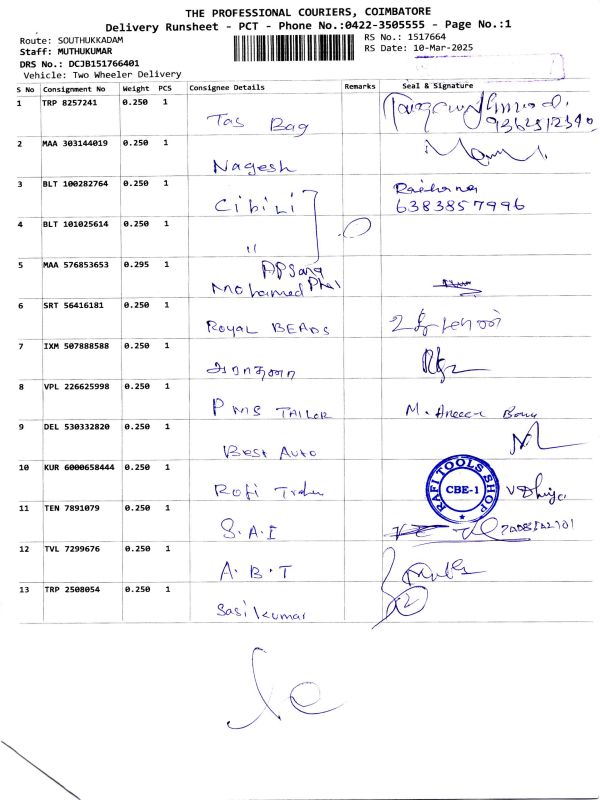 THE PROFESSIONAL COURIERS, COIMBATORE
Delivery Runsheet - PCT - Phone No.:0422-3505555 - Page No.:1
Route: SOUTHUKKADAM
Staff: MUTHUKUMAR
DRS No.: DCJB151766401
Vehicle: Two Wheeler Delivery
RS No.: 1517664
RS Date: 10-Mar-2025
S No Consignment No Weight PCS Consignee Details Remarks Seal & Signature
1 TRP 8257241 0.250 1
Tas Bag
2 MAA 303144019 0.250 1
Nagesh
3 BLT 100282764 0.250 1
Cibili
6383857996
4 BLT 101025614 0.250 1
"
5 MAA 576853653 0.295 1
Mohamed
6 SRT 56416181 0.250 1
Royal BEADS
7 IXM 507888588 0.250 1
8 VPL 226625998 0.250 1
PMS TAILOR M.
9 DEL 530332820 0.250 1
Best Auto
10 KUR 6000658444 0.250 1
RAFI TOOLS SHOP
CBE-1
11 TEN 7891079 0.250 1
S.A.I
12 TVL 7299676 0.250 1
A.B.T
13 TRP 2508054 0.250 1
Sasi kumar